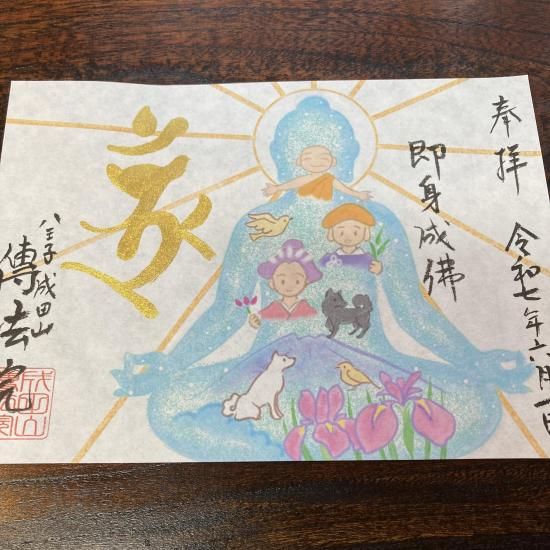 奉拝
令和七年六月一日
即身成佛
八王子成田山
傳法院